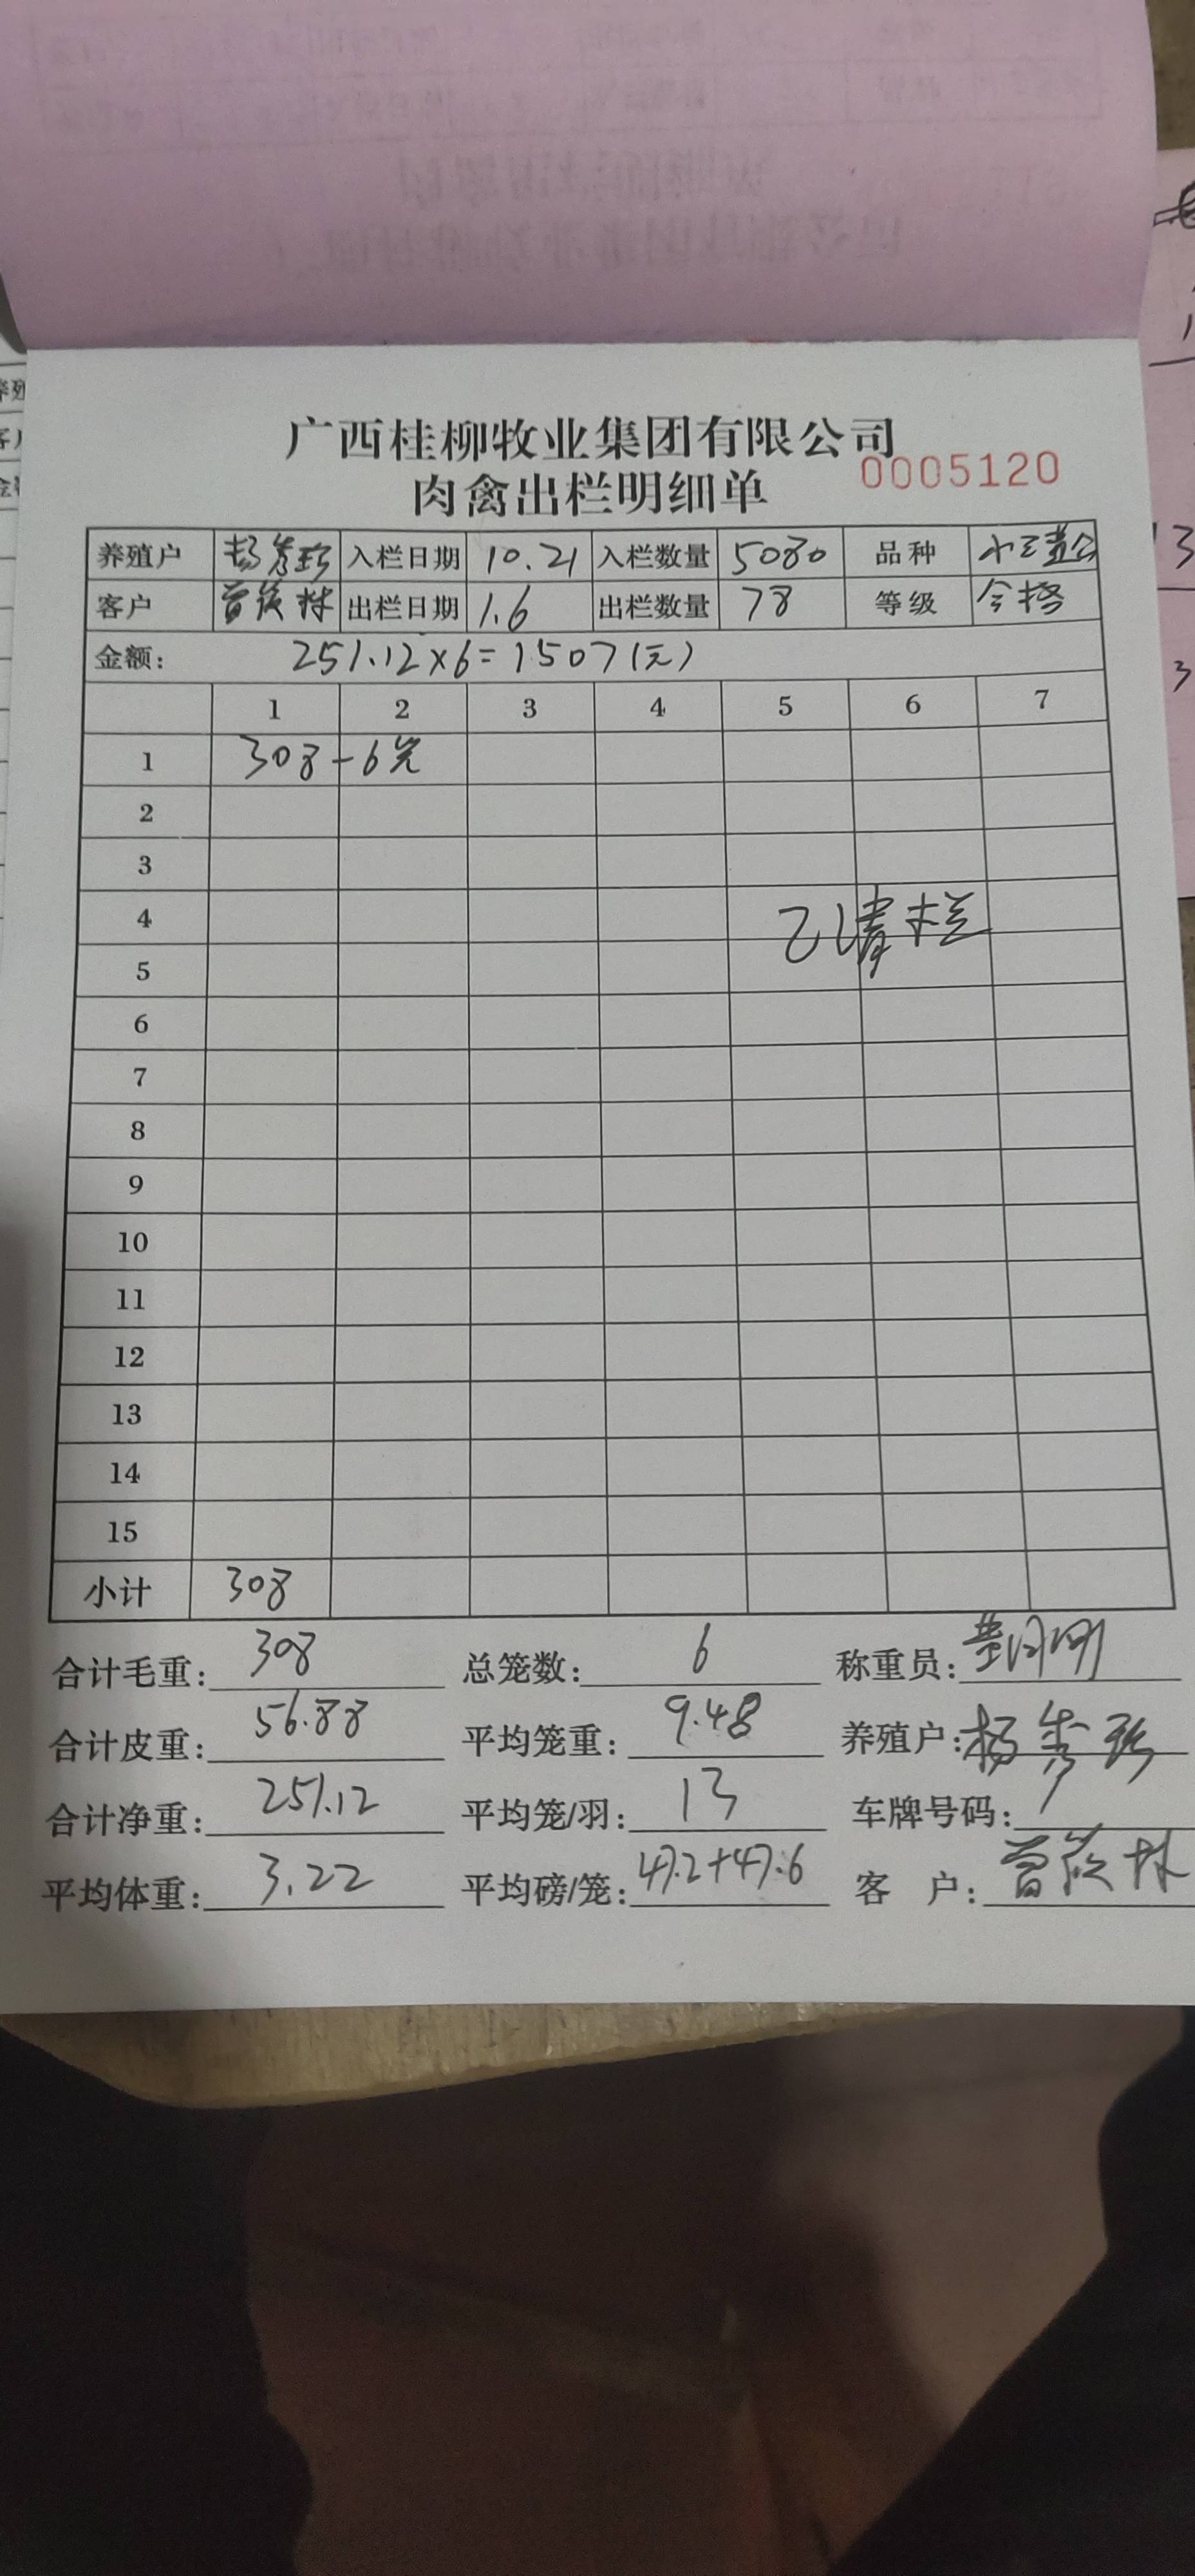 广西桂柳牧业集团有限公司
肉禽出栏明细单 0005120
养殖户 杨秀珍 入栏日期 10.21 入栏数量 5080 品种
客户 曾 林 出栏日期 1.6 出栏数量 78 等级 合格
金额: 251.12×6=1507(元)
1 2 3 4 5 6 7
1 308-6笼
2
3
4 已清栏
5
6
7
8
9
10
11
12
13
14
15
小计 308
合计毛重: 308 总笼数: 6 称重员:
合计皮重: 56.88 平均笼重: 9.48 养殖户: 杨秀珍
合计净重: 251.12 平均笼/羽: 13 车牌号码: /
平均体重: 3.22 平均磅/笼: 47.2+47.6 客 户: 曾 林